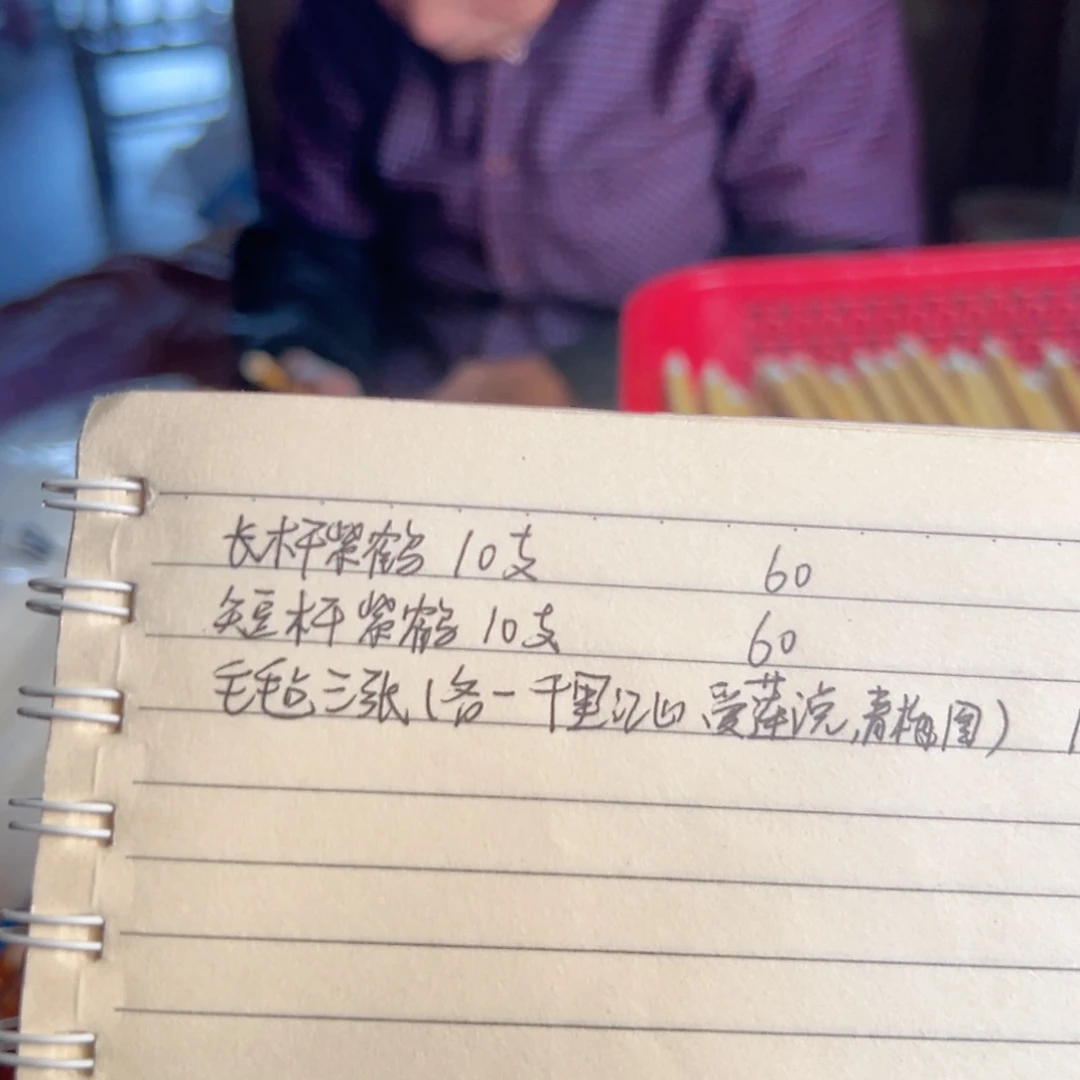 长杆紫鹤 10支 60
短杆紫鹤 10支 60
毛毡三张(各一 千里江山 爱莲说,青梅图)